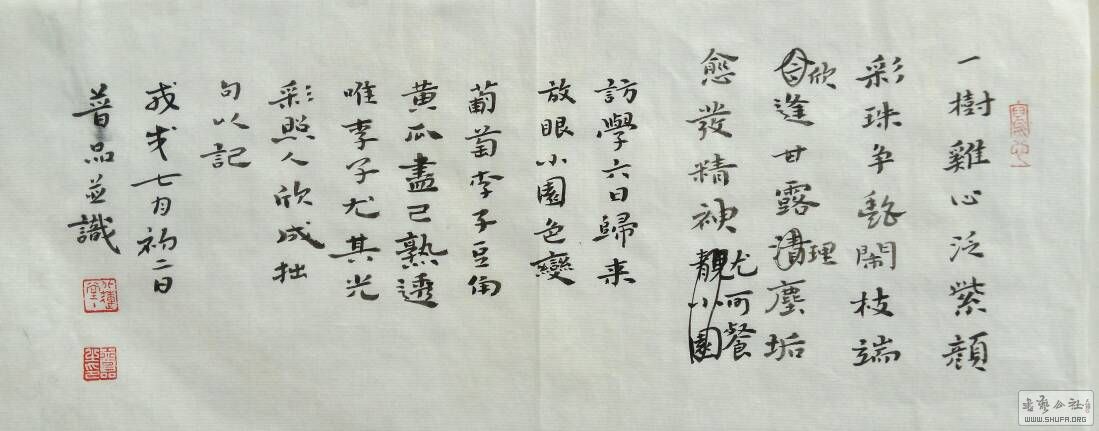 一樹雞心泛紫顏
彩珠争艷鬧枝端
欣逢甘露理塵垢
愈發精神靚小園
尤可餐
訪學六日歸来
放眼小園色變
葡萄李子豆角
黄瓜盡已熟透
唯李子尤其光
彩照人欣成拙
句以記
戊戌七月初二日
普品並識
书艺公社
WWW.SHUFA.ORG